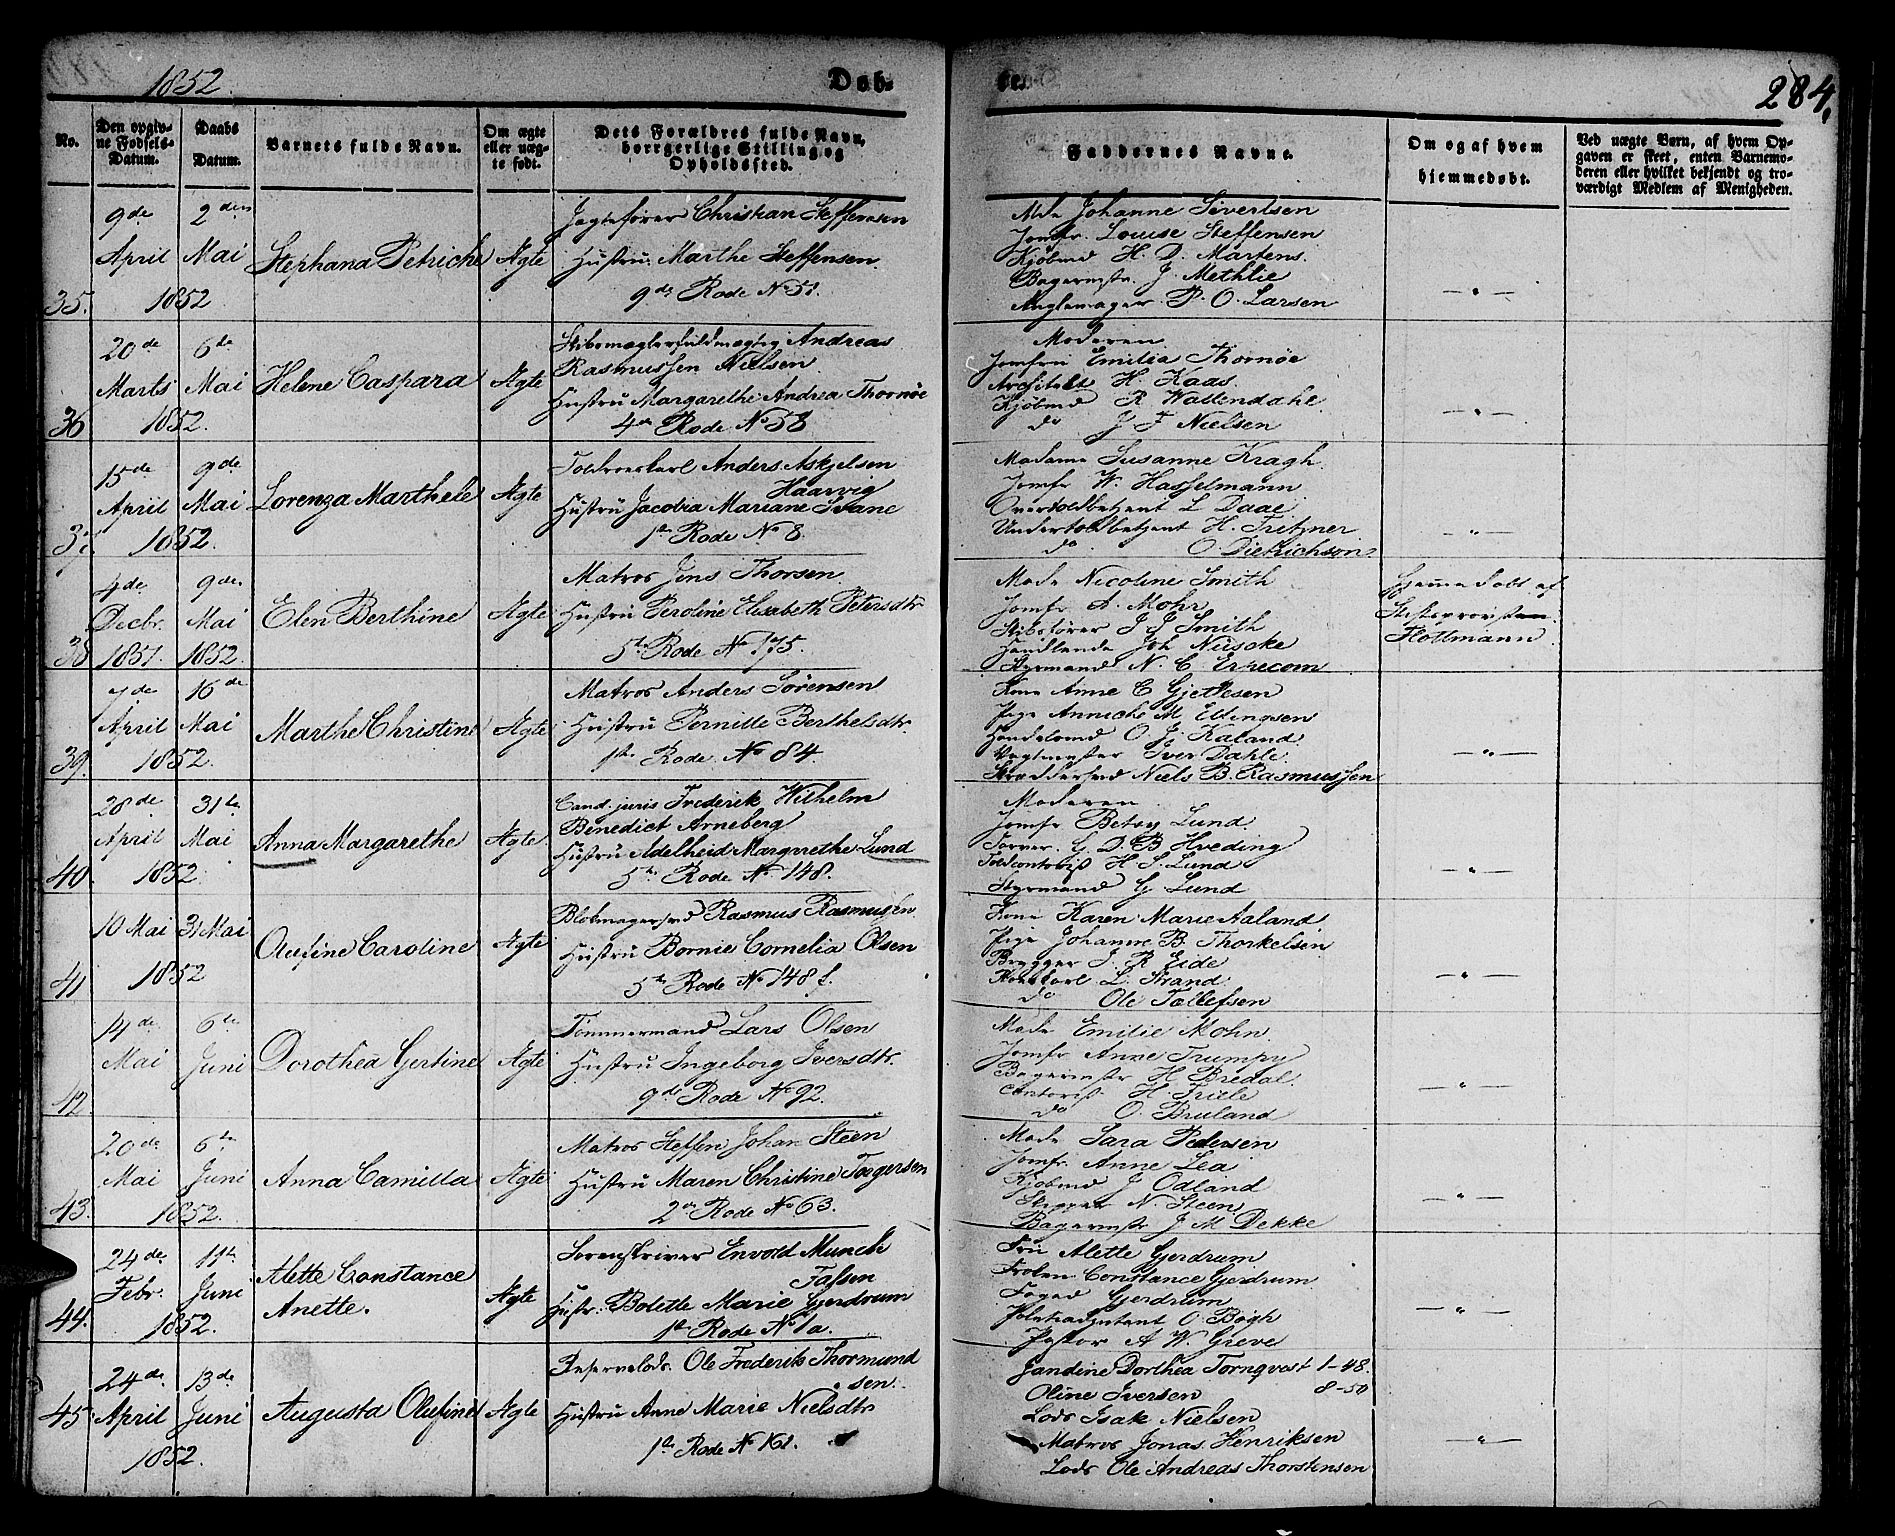 1852.
Døb-
te.
284.
No.
Den opgiv-
ne Fødsels-
Datum.
Daabs
Datum.
Barnets fulde Navn.
Om ægte
eller uæg-
te født.
Dets Forældres fulde Navn,
borgerlige Stilling og
Opholdssted.
Faddernes Navne.
Om og af hvem
hjemmedøbt.
Ved uægte Børn, af hvem Op-
gaven er skeet, enten Barnemo-
deren eller hvilket bekjendt og tro-
værdigt Medlem af Menigheden.
35.
9de April 1852
2den Mai
Stephana Petriche
Ægte
Jagtefører Christian Steffensen
Hustru: Marthe Steffensen.
9de Rode No 51.
Mde Johanne Sivertsen
Jomfr. Louise Steffensen
Kjøbmd H. D. Martens.
Bagermstr J. Methlie
P. O. Larsen
36
20de Marts 1852.
6te Mai
Helene Caspara
Ægte
Skibsmæglerfuldmægtig Andreas
Rasmussen Nielsen.
Hustru Margarethe Andrea Thornøe
4de Rode No 58
Moderen
Jomfru Emilia Thornøe
Architekt H. Kaas.
Kjøbmd R Wallendahl.
do J F Nielsen
37
15de April 1852.
9de Mai
Lorenza Marthele
Ægte
Anders Askjelsen
Haarvig
Hustru Jacobia Mariane Svane
1te Rode No 8.
Madame Susanne Kragh.
Jomfr W. Hasselmann
Overtoldbetjent L Daae
Undertoldbetjent H. Fritzner
do O Dietrichson
38
4de Decbr. 1851.
9de Mai 1852.
Elen Berthine
Ægte
Matros Jens Thorsen
Hustru Peroline Elisabeth Petersdtr
5te Rode No 175.
Made Nicoline Smith
Jomfr A. Mohr
Skibsfører J J Smith
Handlende Joh Nüscke
Styrmand N. C.
Hjemmedøbt af
Stiftsprovst
Flottmann
39.
7de April 1852.
16de Mai
Marthe Christine
Ægte
Matros Anders Sørensen
Hustru Pernille Berthelsdtr.
1te Rode No 84.
Kone Anne C Gjertsen
Pige Anniche M. Ellingsen
Handelsmd O. J. Kaland.
Vegtmester Iver Dahle
Skræddersvd Niels B. Rasmussen
40.
28de April 1852.
31te Mai
Anna Margarethe
Ægte
Cand. juris Frederik Wilhelm
Benedict Arneberg
Hustru Adelheid Margrethe Lund
5te Rode No 148.
Moderen
Jomfr Betsy Lund.
G. D. B Hveding
Toldcontrolist H. S. Lund
Styrmand G. Lund
41
10 Mai 1852
31 Mai
Olufine Caroline
Ægte
Blokmagersvd Rasmus Rasmussen
Hustru Bornie Cornelia Olsen
5te Rode No 148 f.
Kone Karen Marie Aaland
Pige Johanne B. Thorkelsen
Brygger J. R. Eide
L. Strand
do Ole Tollefsen
42
14de Mai
6te Juni
Dorothea Gertine
Ægte
Tømmermand Lars Olsen
Hustru Ingeborg Iversdtr.
9de Rode No 92.
Made Emilie Mohn
Jomfr Anne Trumpy
Bagermstr H. Bredal.
Contorist H. Friele
do O. Bruland
43.
20de Mai 1852.
6te Juni
Anna Camilla
Ægte
Matros Steffen Johan Steen
Hustru Maren Christine Toegersen
2den Rode No 63.
Made Sara Pedersen
Jomfr. Anne Lea
Kjøbmd J Odland
Skipper N. Steen
Bagermstr J. M. Dekke
44.
24de Febr. 1852.
11te Juni
Alette Constance
Anette.
Ægte
Sorenskriver Envold Munch
Falsen
Hustr: Bolette Marie Gjerdrum
1te Rode No 1a.
Fru Alette Gjerdrum
Frøken Constance Gjerdrum
Foged Gjerdrum
Politiadjutant O Bøgh
Pastor A W. Greve
45.
24de April 1852.
13de Juni
Augusta Olufine
Ægte
Reservelods Ole Frederik Thormund
sen.
Hustru Anne Marie Nielsdtr
1te Rode No 162.
Jandine Dorthea Tornqvast 1-48.
Oline Iversen 8-50
Lods Isak Nielsen
Matros Jonas Henriksen
Lods Ole Andreas Thorstensen